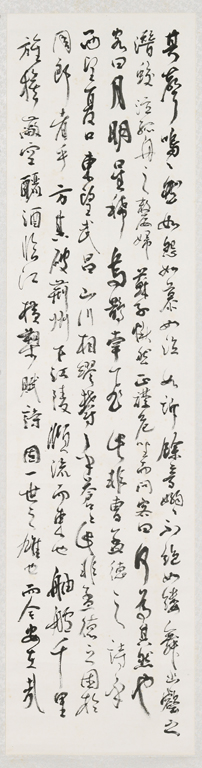 其聲嗚嗚然如怨如慕如泣如訴餘音嫋嫋不絕如縷舞幽壑之
潛蛟泣孤舟之嫠婦蘇子愀然正襟危坐而問客曰何為其然也
客曰月明星稀烏鵲南飛此非曹孟德之詩乎
西望夏口東望武昌山川相繆鬱乎蒼蒼此非孟德之困於
周郎者乎方其破荊州下江陵順流而東也舳艫千里
旌旗蔽空釃酒臨江橫槊賦詩固一世之雄也而今安在哉